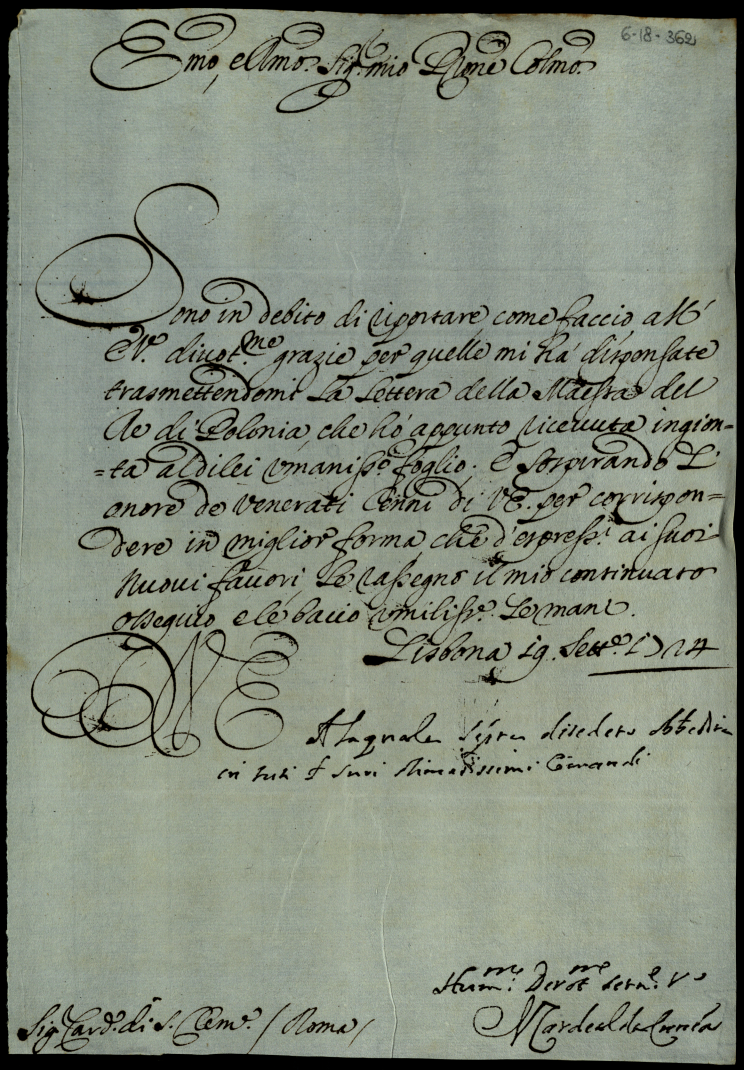 6-18-362
Emo, e Rmo. Sig.r mio Prone Colmo.
Sono in debito di riportare, come faccio a
V.E. divot.me grazie per quelle mi há dispensate
trasmettendomi la Lettera della Maestà del
Re di Polonia, che hó appunto ricevuta ingion=
=ta al di lei umaniss.o foglio. E sospirando L'
onore de venerati Cenni di V.E. per corrispon=
dere in miglior forma, che d'espress.i ai suoi
nuovi favori, Le rassegno il mio continuato
ossequio e le bacio umiliss.e Le mani.
Lisbona 19. Sett.e 1724
VE
Alaquale
in tuti suoi stimatissimi Comandi
Hum.mo Devot.mo
Sig. Card. di S. Clem.e / Roma /